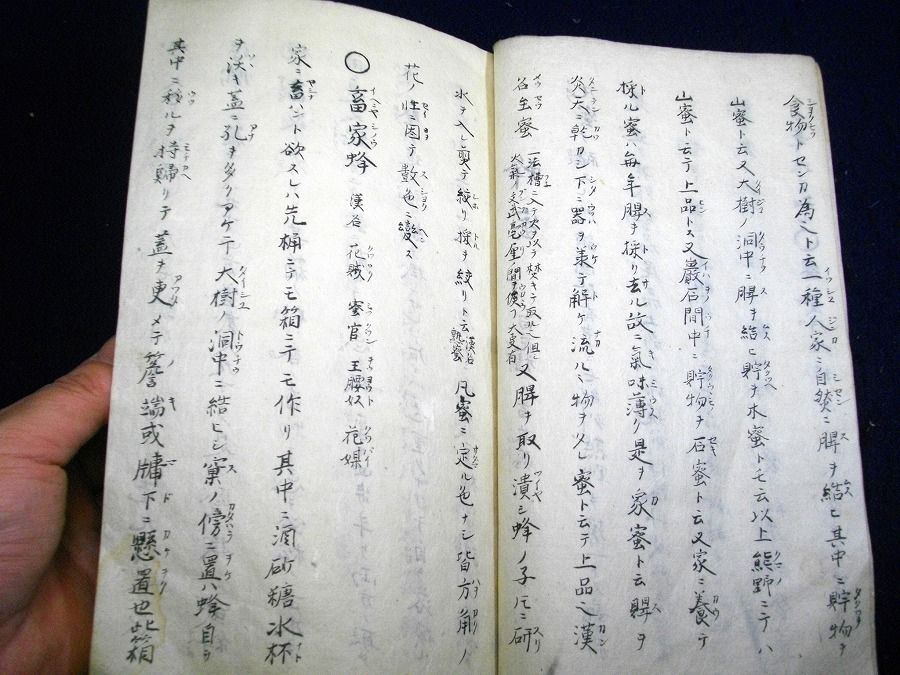 食物トセンカ為也ト云一種人家ニ自然ニ脾ヲ結ヒ其中ニ貯物ヲ
山蜜ト云又大樹ノ洞中ニ脾ヲ結ヒ貯ヲ木蜜トモ云以上熊野ニテハ
山蜜ト云テ上品トス又巖石間中ニ貯物ヲ石蜜ト云又家ニ養テ
採ル蜜ハ毎年脾ヲ採リ去ル故ニ氣味薄ク是ヲ家蜜ト云脾ヲ
炎天ニ乾カシ下ニ器ヲ承テ解ケ流ルヽ物ヲタレ蜜ト云テ上品也漢
名生蜜 一法槽ニ入テ火ヲ以テ焚キテ取ル也但シ
火氣ノ文武毫厘ノ間ヲ候フ大事有 又脾ヲ取リ潰シ蜂ノ子トモニ研
水ヲ入レ煎テ絞リ採ヲ絞リト云 漢名熟蜜 凡蜜ニ定ル色ナシ皆方角ノ
花ノ性ニ因テ数色ニ變ス
○畜家蜂 漢名 花賊 蜜官 王腰奴 花媒
家ニ畜ハント欲スレハ先桶ニテモ箱ニテモ作リ其中ニ酒砂糖水抔
ヲ沃キ蓋ニ孔ヲ多クアケテ大樹ノ洞中ニ結ヒシ窠ノ傍ニ置ハ蜂自ラ
其中ニ移ルヲ持歸リテ蓋ヲ更メテ簷端或牗下ニ懸置也此箱